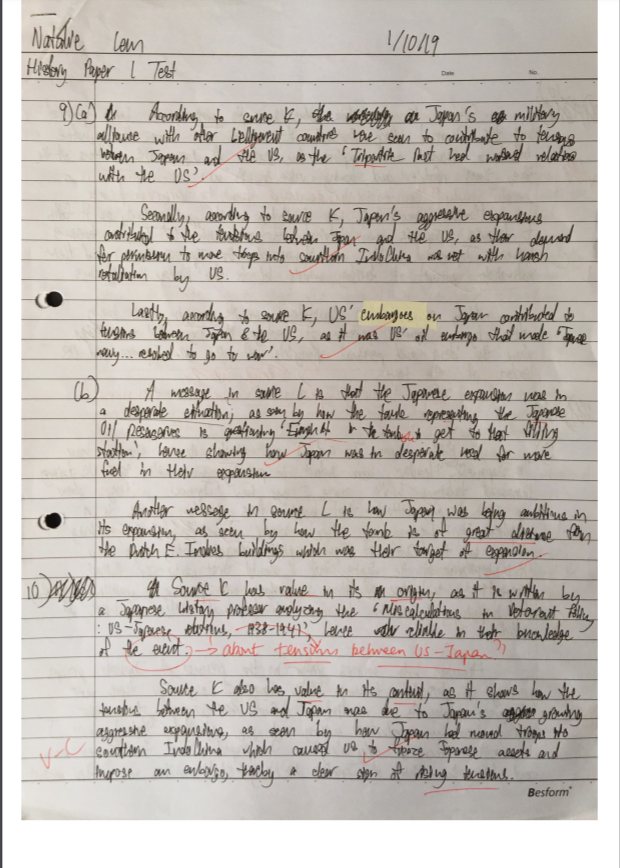 Natalie Lem 1/10/19
History Paper 1 Test
Date No.
9)(a) According to source K, Japan's military
alliance with other belligerent countries were seen to contribute to tensions
between Japan and the US, as the 'Tripartite Pact had worsened relations
with the US'.
Secondly, according to source K, Japan's aggressive expansions
contributed to the tensions between Japan and the US, as their demand
for permission to move troops into southern IndoChina was met with harsh
retaliation by US.
Lastly, according to source K, US' embargoes on Japan contributed to
tensions between Japan & the US, as it was US' oil embargo that made 'Japanese
navy... resolved to go to war'.
(b) A message in source L is that the Japanese expansion was in
a desperate situation, as seen by how the tank representing the Japanese
Oil Resources is questioning 'Enough in the tank to get to that filling
station', hence showing how Japan was in desperate need for more
fuel in their expansion
Another message in source L is how Japan was being ambitious in
its expansion, as seen by how the tank is of great distance from
the Dutch E. Indies buildings which was their target of expansion.
10) Source K has value in its origin, as it is written by
a Japanese history professor analyzing the 'Miscalculations in Deterrent Policy
: US-Japanese relations, 1938-1941', hence reliable in their knowledge
of the event. → about tensions between US-Japan
Source K also has value in its content, as it shows how the
tensions between the US and Japan was due to Japan's growing
aggressive expansions, as seen by how Japan had moved troops into
V-C southern IndoChina which caused US to freeze Japanese assets and
impose an embargo, thereby a clear sign of rising tensions.
Besform